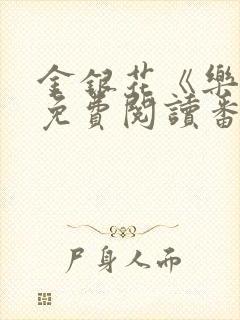 金銀花《樂
免費閱讀番
尸身人而